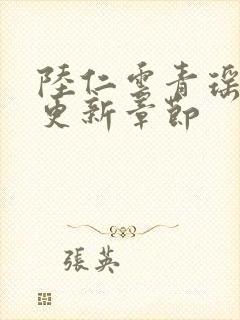 陸仁雲青瑤
更新章節
張英